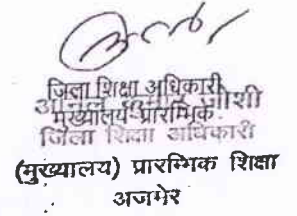 जिला शिक्षा अधिकारी
मुख्यालय प्रारम्भिक
जिला शिक्षा अधिकारी
(मुख्यालय) प्रारम्भिक शिक्षा
अजमेर